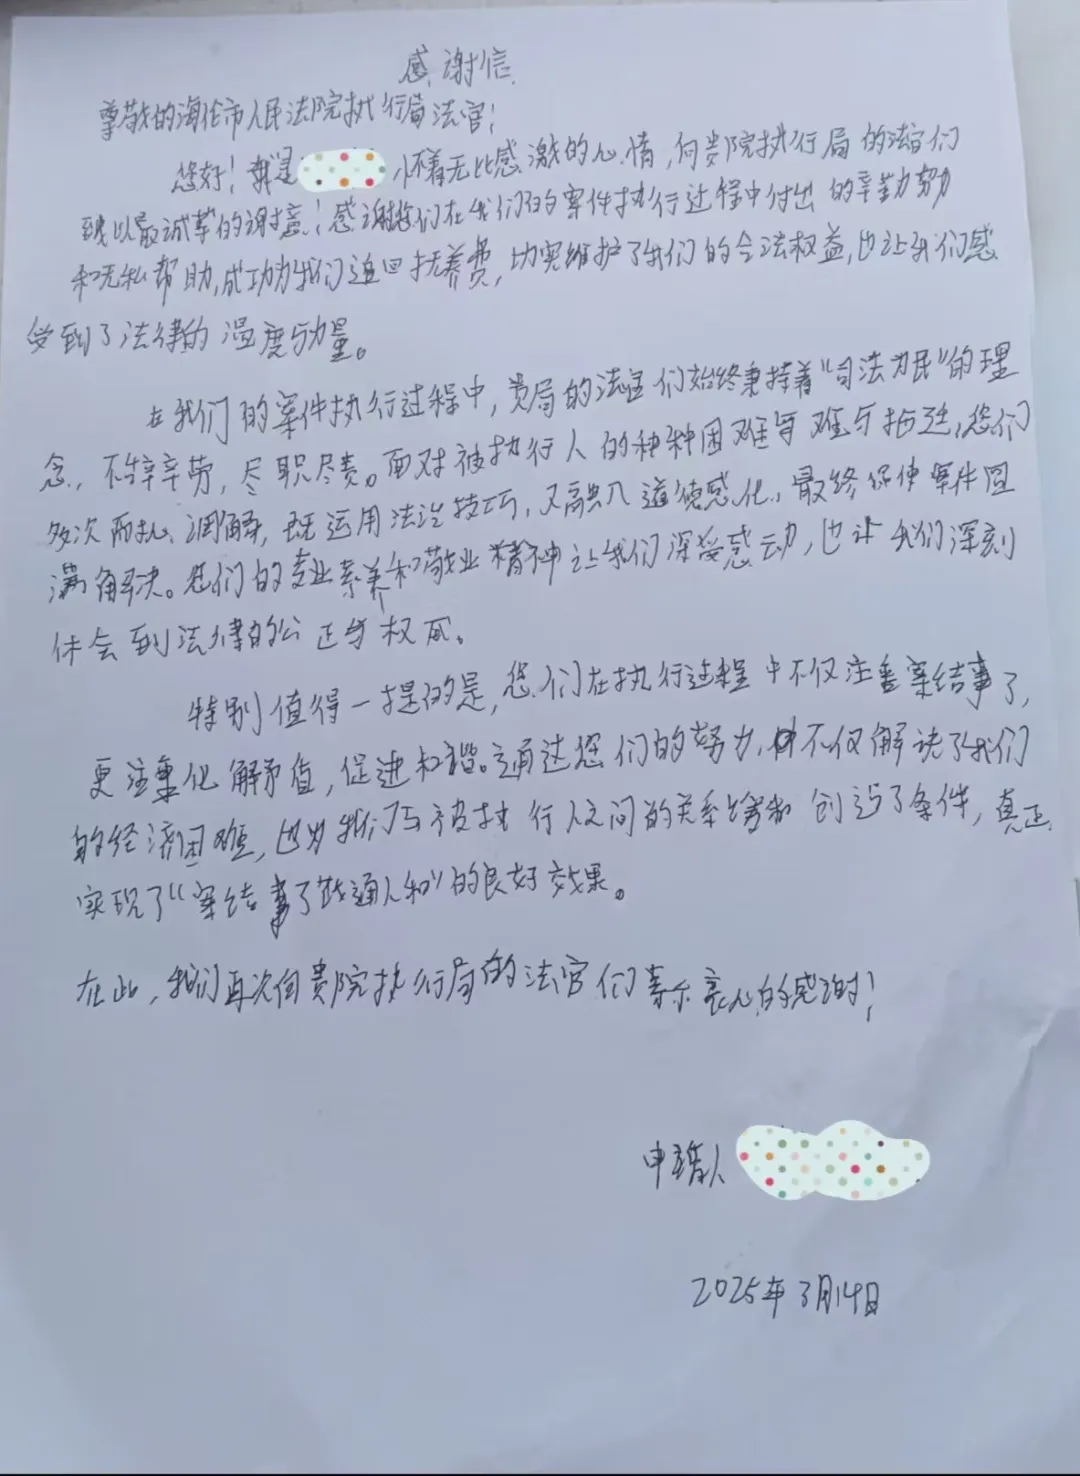 感谢信
尊敬的海伦市人民法院执行局法官!
您好!我是 怀着无比感激的心情,向贵院执行局的法官们
致以最诚挚的谢意!感谢您们在我们的案件执行过程中付出的辛勤努力
和无私帮助,成功为我们追回抚养费,切实维护了我们的合法权益,也让我们感
受到了法律的温度与力量。
在我们的案件执行过程中,贵局的法官们始终秉持着“司法为民”的理
念,不辞辛劳,尽职尽责。面对被执行人的种种困难与拖延,您们
多次沟通、调解,既运用法治技巧,又融入道德感化,最终促使案件圆
满解决。您们的专业素养和敬业精神让我们深受感动,也让我们深刻
体会到法律的公正与权威。
特别值得一提的是,您们在执行过程中不仅注重案结事了,
更注重化解矛盾,促进和谐。通过您们的努力,不仅解决了我们
的经济困难,也为我们与被执行人之间的关系缓和创造了条件,真正
实现了“案结事了政通人和”的良好效果。
在此,我们再次向贵院执行局的法官们表示衷心的感谢!
申请人
2025年3月14日